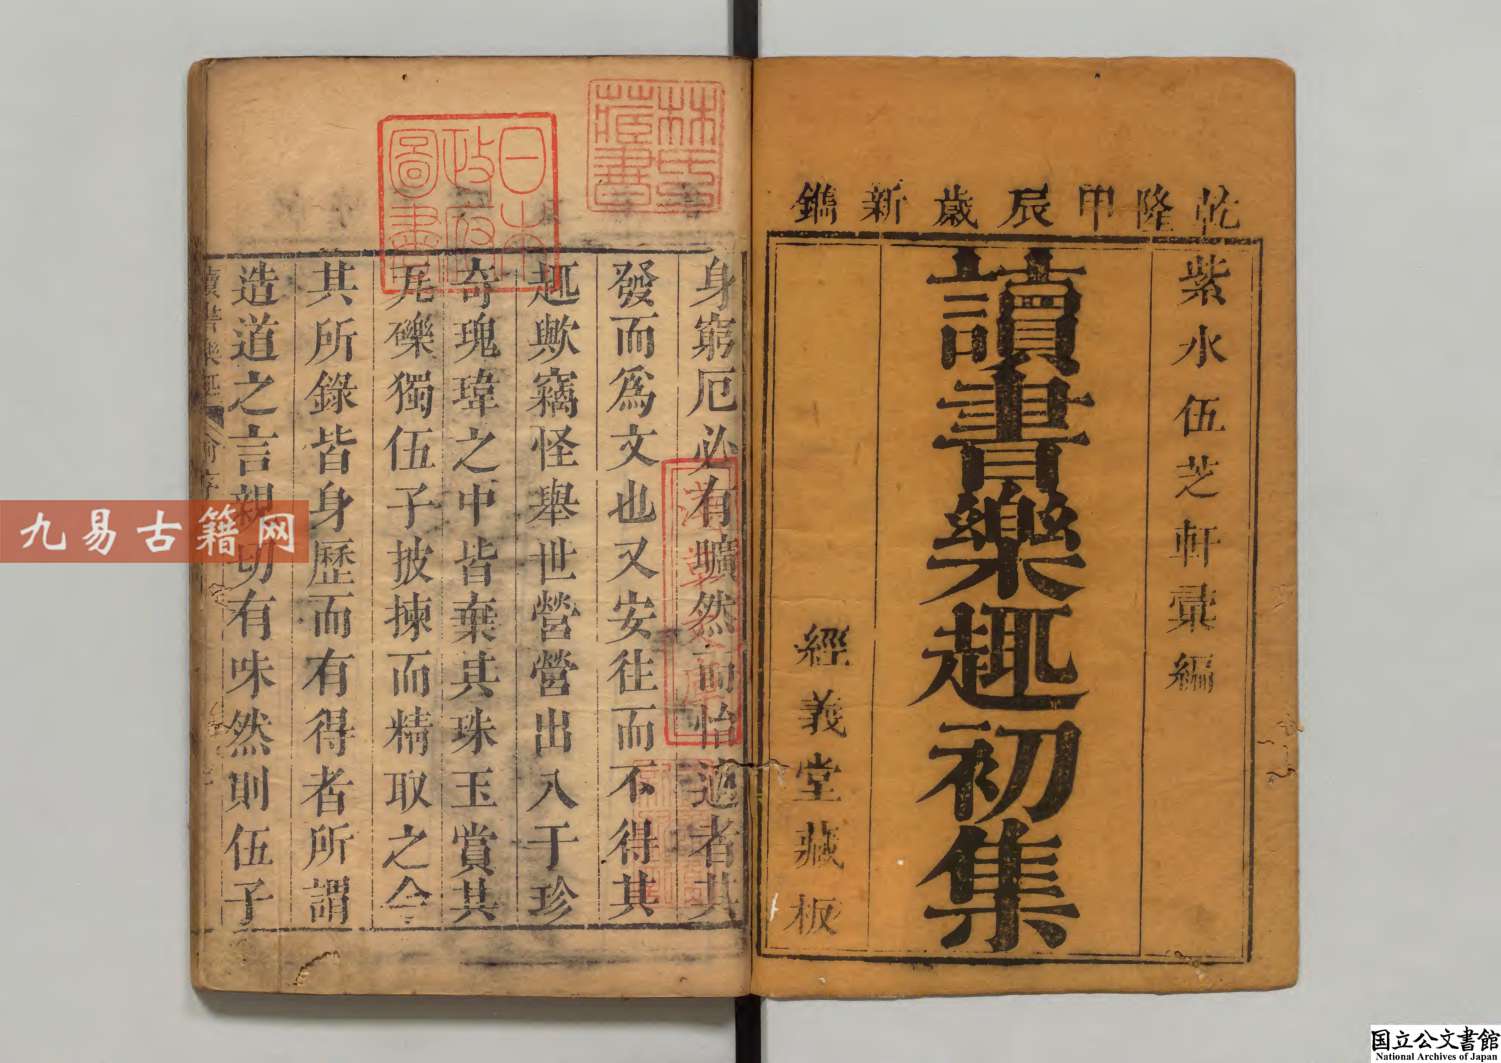 乾隆甲辰歲新鐫
紫水伍芝軒彙編
讀書樂趣初集
經義堂藏板
林氏藏書
日本政府圖書
身窮厄必有曠然而怡適者其
發而為文也又安往而不得其
趣歟竊怪舉世營營出入于珍
奇瑰瑋之中皆棄其珠玉賞其
瓦礫獨伍子披揀而精取之今
其所錄皆身歷而有得者所謂
造道之言親切有味然則伍子
讀書樂趣
九易古籍网
国立公文書館
National Archives of Japan